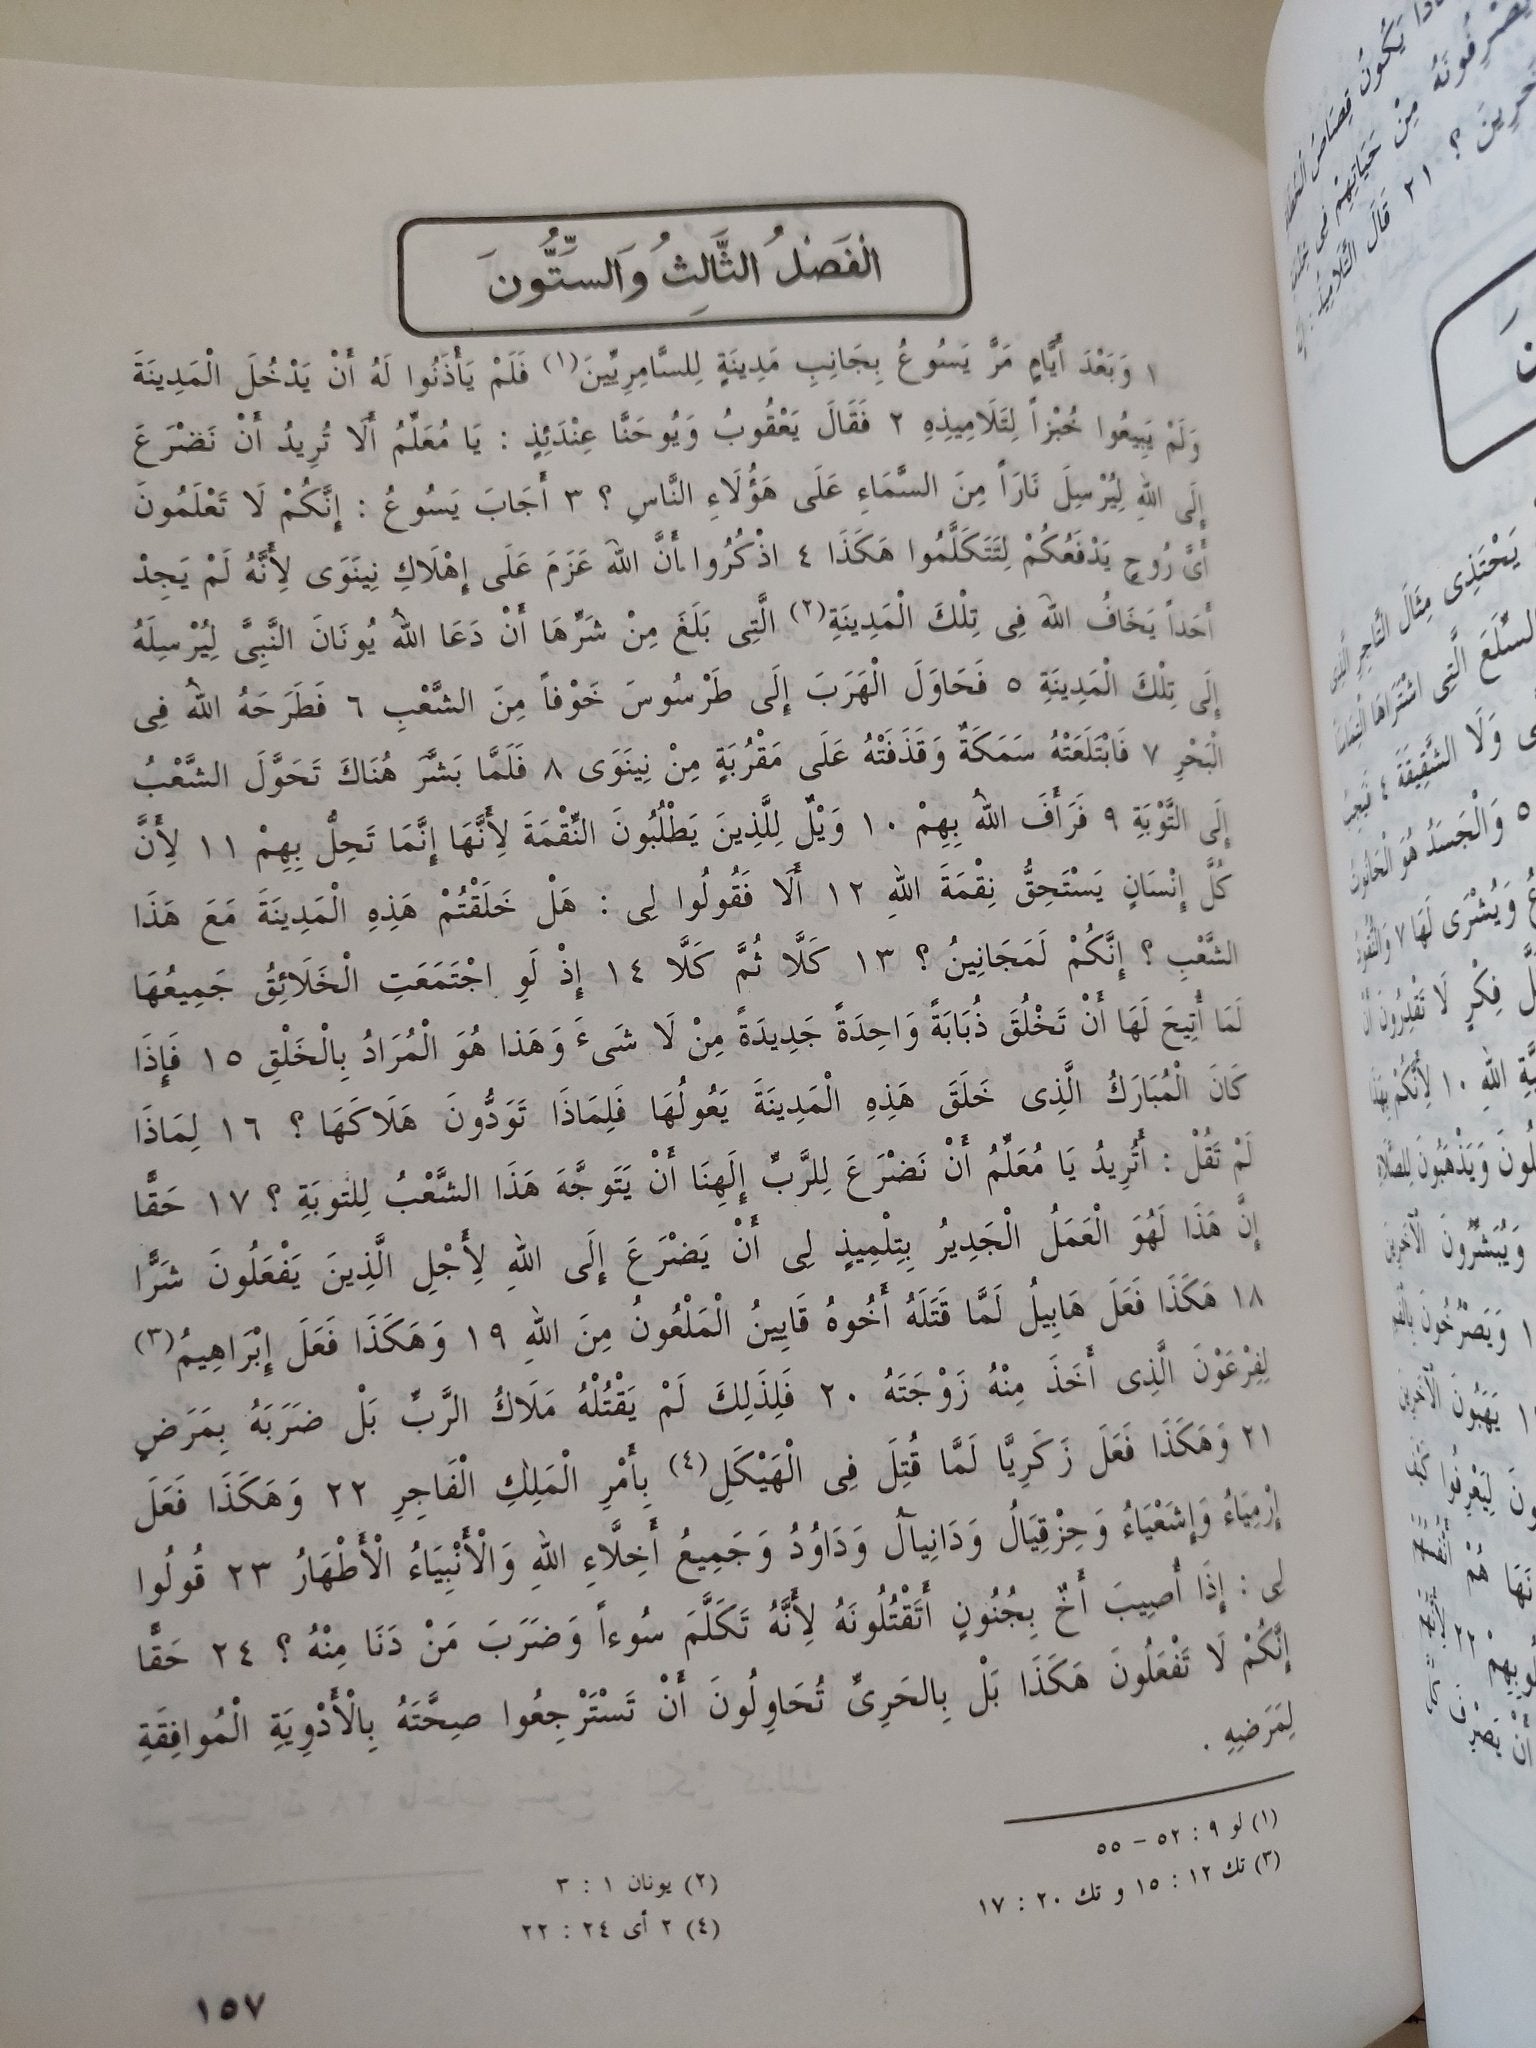 الْفَصْلُ الثَّالِثُ وَالسِّتُّونَ
١ وَبَعْدَ أَيَّامٍ مَرَّ يَسُوعُ بِجَانِبِ مَدِينَةٍ لِلسَّامِرِيِّينَ(١) فَلَمْ يَأْذَنُوا لَهُ أَنْ يَدْخُلَ الْمَدِينَةَ
وَلَمْ يَبِيعُوا خُبْزاً لِتَلَامِيذِهِ ٢ فَقَالَ يَعْقُوبُ وَيُوحَنَّا عِنْدَئِذٍ : يَا مُعَلِّمُ أَلَا تُرِيدُ أَنْ نَضْرَعَ
إِلَى اللهِ لِيُرْسِلَ نَارَاً مِنَ السَّمَاءِ عَلَى هَؤُلَاءِ النَّاسِ ؟ ٣ أَجَابَ يَسُوعُ : إِنَّكُمْ لَا تَعْلَمُونَ
أَىَّ رُوحٍ يَدْفَعُكُمْ لِتَتَكَلَّمُوا هَكَذَا ٤ اذْكُرُوا أَنَّ اللهَ عَزَمَ عَلَى إِهْلَاكِ نِينَوَى لِأَنَّهُ لَمْ يَجِدْ
أَحَداً يَخَافُ اللهَ فِى تِلْكَ الْمَدِينَةِ(٢) الَّتِى بَلَغَ مِنْ شَرِّهَا أَنْ دَعَا اللهُ يُونَانَ النَّبِىَّ لِيُرْسِلَهُ
إِلَى تِلْكَ الْمَدِينَةِ ٥ فَحَاوَلَ الْهَرَبَ إِلَى طَرْسُوسَ خَوْفاً مِنَ الشَّعْبِ ٦ فَطَرَحَهُ اللهُ فِى
الْبَحْرِ ٧ فَابْتَلَعَتْهُ سَمَكَةٌ وَقَذَفَتْهُ عَلَى مَقْرُبَةٍ مِنْ نِينَوَى ٨ فَلَمَّا بَشَّرَ هُنَاكَ تَحَوَّلَ الشَّعْبُ
إِلَى التَّوْبَةِ ٩ فَرَأَفَ اللهُ بِهِمْ ١٠ وَيْلٌ لِلَّذِينَ يَطْلُبُونَ النِّقْمَةَ لِأَنَّهَا إِنَّمَا تَحِلُّ بِهِمْ ١١ لِأَنَّ
كُلَّ إِنْسَانٍ يَسْتَحِقُّ نِقْمَةَ اللهِ ١٢ أَلَا فَقُولُوا لِى : هَلْ خَلَقْتُمْ هَذِهِ الْمَدِينَةَ مَعَ هَذَا
الشَّعْبِ ؟ إِنَّكُمْ لَمَجَانِينُ ؟ ١٣ كَلَّا ثُمَّ كَلَّا ١٤ إِذْ لَوِ اجْتَمَعَتِ الْخَلَائِقُ جَمِيعُهَا
لَمَا أُتِيحَ لَهَا أَنْ تَخْلُقَ ذُبَابَةً وَاحِدَةً جَدِيدَةً مِنْ لَا شَىءَ وَهَذا هُوَ الْمُرَادُ بِالْخَلْقِ ١٥ فَإِذَا
كَانَ الْمُبَارَكُ الَّذِى خَلَقَ هَذِهِ الْمَدِينَةَ يَعُولُهَا فَلِمَاذَا تَوَدُّونَ هَلَاكَهَا ؟ ١٦ لِمَاذَا
لَمْ تَقُلْ : أَتُرِيدُ يَا مُعَلِّمُ أَنْ نَضْرَعَ لِلرَّبِّ إِلَهِنَا أَنْ يَتَوجَّهَ هَذَا الشَّعْبُ لِلتَّوبَةِ ؟ ١٧ حَقًّا
إِنَّ هَذَا لَهُوَ الْعَمَلُ الْجَدِيرُ بِتِلْمِيذٍ لِى أَنْ يَضْرَعَ إِلَى اللهِ لِأَجْلِ الَّذِينَ يَفْعَلُونَ شَرًّا
١٨ هَكَذَا فَعَلَ هَابِيلُ لَمَّا قَتَلَهُ أَخُوهُ قَايِينُ الْمَلْعُونُ مِنَ اللهِ ١٩ وَهَكَذَا فَعَلَ إِبْرَاهِيمُ(٣)
لِفِرْعَوْنَ الَّذِى أَخَذَ مِنْهُ زَوْجَتَهُ ٢٠ فَلِذَلِكَ لَمْ يَقْتُلْهُ مَلَاكُ الرَّبِّ بَلْ ضَرَبَهُ بِمَرَضٍ
٢١ وَهَكَذَا فَعَلَ زَكَرِيَّا لَمَّا قُتِلَ فِى الْهَيْكَلِ(٤) بِأَمْرِ الْمَلِكِ الْفَاجِرِ ٢٢ وَهَكَذَا فَعَلَ
إِرْمِيَاءُ وَإِشَعْيَاءُ وَحِزْقِيَالُ وَدَانِيآلُ وَدَاوُدُ وَجَمِيعُ أَخِلَّاءِ اللهِ وَالْأَنْبِيَاءُ الْأَطْهَارُ ٢٣ قُولُوا
لِى : إِذَا أُصِيبَ أَخٌ بِجُنُونٍ أَتَقْتُلُونَهُ لِأَنَّهُ تَكَلَّمَ سُوءاً وَضَرَبَ مَنْ دَنَا مِنْهُ ؟ ٢٤ حَقًّا
إِنَّكُمْ لَا تَفْعَلُونَ هَكَذَا بَلْ بِالحَرِىِّ تُحَاوِلُونَ أَنْ تَسْتَرْجِعُوا صِحَّتَهُ بِالْأَدْوِيَةِ الْمُوافِقَةِ
لِمَرَضِهِ .
(١) لو ٩ : ٥٢ – ٥٥
(٢) يونان ١ : ٣
(٣) تك ١٢ : ١٥ و تك ٢٠ : ١٧
(٤) ٢ أى ٢٤ : ٢٢
١٥٧
يَكُونُ قِصَاصُ
يَصْرِفُونَهُ مِنْ حَيَاتِهِمْ فِى
؟ ٢١ قَالَ التَّلَامِيذُ :
يَحْتَذِى مِثَالَ التَّاجِرِ الَّذِى
السِّلَعَ الَّتِى اشْتَرَاهَا
وَلَا الشَّقِيقَةَ ٤
٥ وَالْجَسَدُ هُوَ الْحَانُوتُ
وَيُشْرَى لَهَا ٧ وَالنُّقُودُ
فِكْرٍ لَا تَقْدِرُونَ أَنْ
اللهِ ١٠ لِأَنَّكُمْ بِهَذَا
وَيَذْهَبُونَ لِلصَّلَاةِ
وَيُبَشِّرُونَ الْآخَرِينَ
وَيَصْرُخُونَ
يَهَبُونَ الْآخَرِينَ
لِيَعْرِفُوا كَيْفَ
هُمْ
٢٢
أَنْ يَصْرِفَ